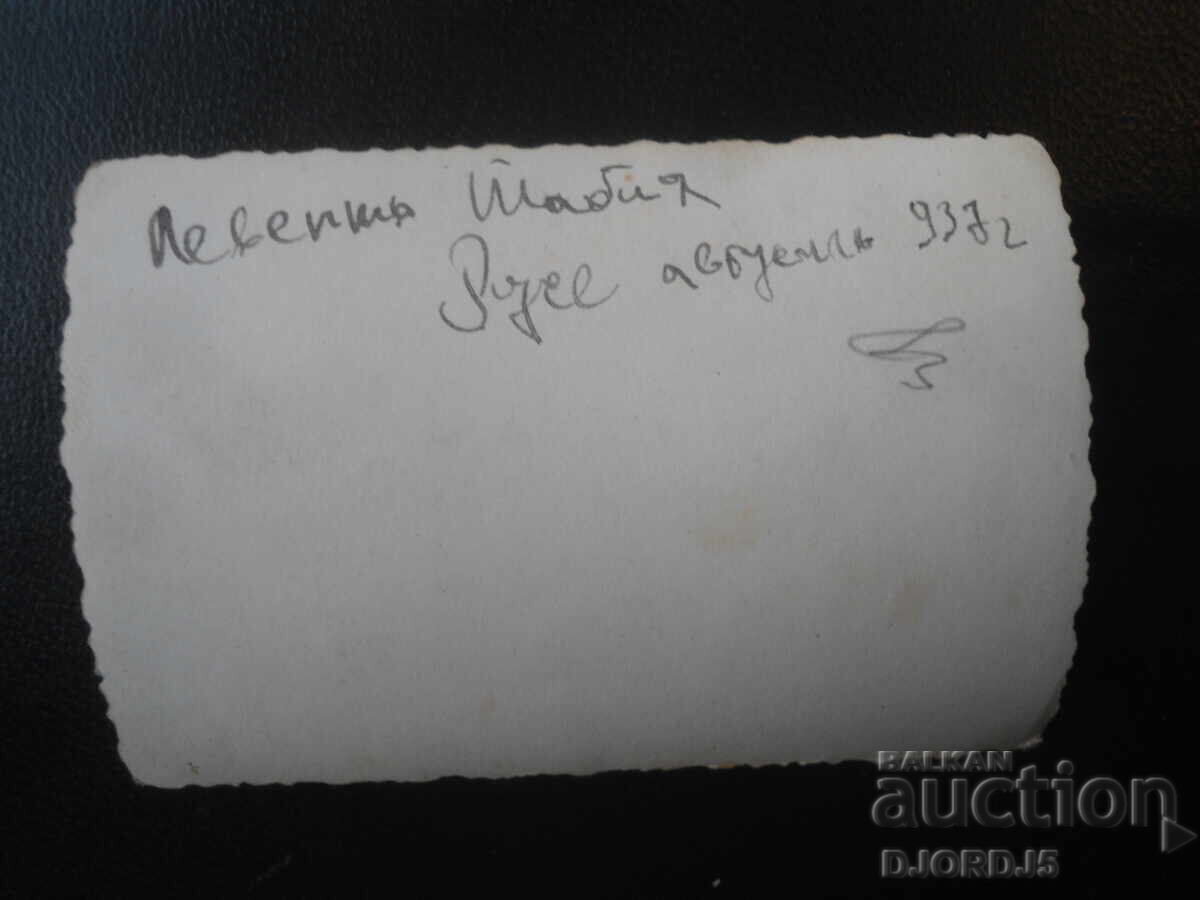 Левентъ Табия
Русе августъ 937 г
BALKAN
auction
DJORDJ5